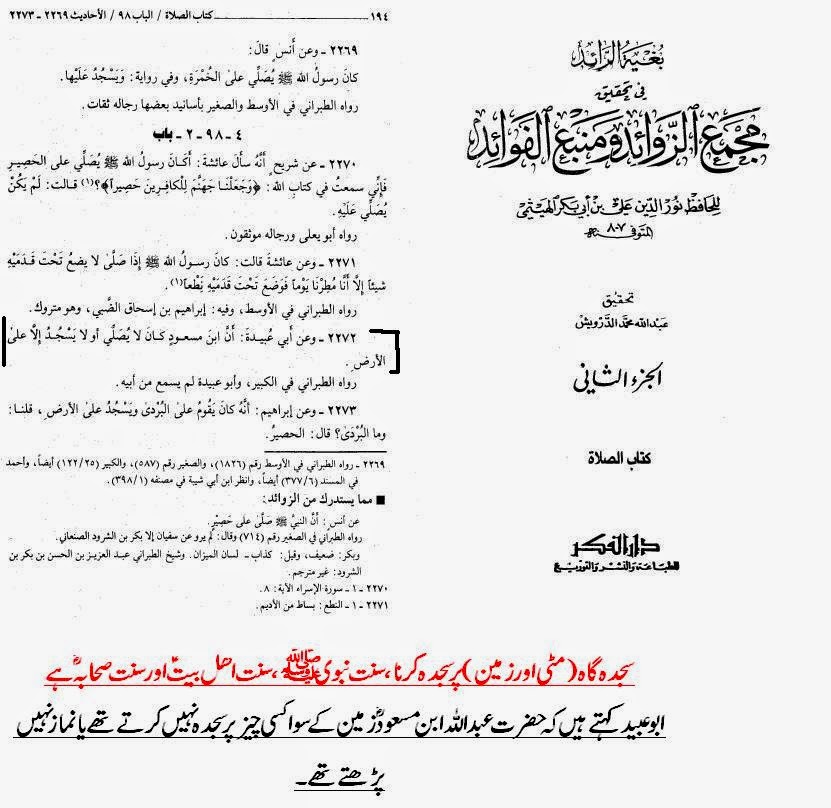 بغية الرائد
في تحقيق
مجمع الزوائد ومنبع الفوائد
للحافظ نور الدين علي بن أبي بكر الهيثمي
المتوفى ٨٠٧ هـ
تحقيق
عبد الله محمد الدرويش
الجزء الثاني
كتاب الصلاة
دار الفكر
للطباعة والنشر والتوزيع
١٩٤ ـ كتاب الصلاة / الباب ٩٨ / الأحاديث ٢٢٦٩ ـ ٢٢٧٣
٢٢٦٩ ـ وعن أنسٍ قالَ:
كانَ رسولُ الله ﷺ يُصَلِّي على الخُمْرَةِ، وفي رواية: وَيَسْجُدُ عَلَيْها.
رواه الطبراني في الأوسط والصغير بأسانيد بعضها رجاله ثقات.
٤ ـ ٩٨ ـ ٢ ـ باب
٢٢٧٠ ـ عن شريحٍ أَنَّهُ سألَ عائشةَ: أَكَانَ رسولُ اللهِ ﷺ يُصَلِّي على الحَصِيرِ
فَإِنِّي سمعتُ في كتابِ الله: ﴿وَجَعَلْنَا جَهَنَّمَ لِلْكافِرِينَ حَصِيراً﴾؟(١) قالت: لَمْ يَكُنْ
يُصَلِّي عَلَيْهِ.
رواه أبو يعلى ورجاله موثقون.
٢٢٧١ ـ وعن عائشةَ قالت: كانَ رسولُ الله ﷺ إِذَا صَلَّىٰ لا يضعُ تَحْتَ قَدَمَيْهِ
شيئاً إِلَّا أَنَّا مُطِرْنَا يَوْماً فَوَضَعَ تَحْتَ قَدَمَيْهِ نِطْعاً(١).
رواه الطبراني في الأوسط، وفيه: إبراهيم بن إسحاق الضَّبي، وهو متروك.
٢٢٧٢ ـ وعن أَبي عُبيدةَ: أَنَّ ابنَ مسعودٍ كَانَ لا يُصَلِّي أو لا يَسْجُدُ إِلَّا علىٰ
الأرضِ.
رواه الطبراني في الكبير، وأبو عبيدة لم يسمع من أبيه.
٢٢٧٣ ـ وعن إبراهيم: أَنَّهُ كانَ يَقُومُ على البُرْدى ويَسْجُدُ على الأرضِ، قلنا:
وما البُرْدَىٰ؟ قال: الحصيرُ.
٢٢٦٩ ـ رواه الطبراني في الأوسط رقم (١٨٢٦)، والصغير رقم (٥٨٧)، والكبير (١٢٢/٢٥) أيضاً، وأحمد
في المسند (٣٧٧/٦) أيضاً، وانظر ابن أبي شيبة في مصنفه (٣٩٨/١)
■ مما يستدرك من الزوائد:
عن أنس: أنَّ النبيَّ ﷺ صَلَّى على حَصِيرٍ.
رواه الطبراني في الصغير رقم (٧١٤) وقال: لم يرو عن سفيان إلا بكر بن الشرود الصنعاني.
وبكر: ضعيف، وقيل: كذاب ـ لسان الميزان. وشيخ الطبراني عبد العزيز بن الحسن بن بكر بن
الشرود: غير مترجم.
٢٢٧٠ ـ ١ ـ سورة الإسراء الآية: ٨.
٢٢٧١ ـ ١ ـ النطع: بساط من الأديم.
سجدہ گاہ (مٹی اور زمین) پر سجدہ کرنا، سنت نبوی ﷺ، سنت اھل بیتؑ اور سنت صحابہؓ ہے
ابو عبید کہتے ہیں کہ حضرت عبداللہ ابن مسعودؓ زمین کے سوا کسی چیز پر سجدہ نہیں کرتے تھے یا نماز نہیں
پڑھتے تھے۔